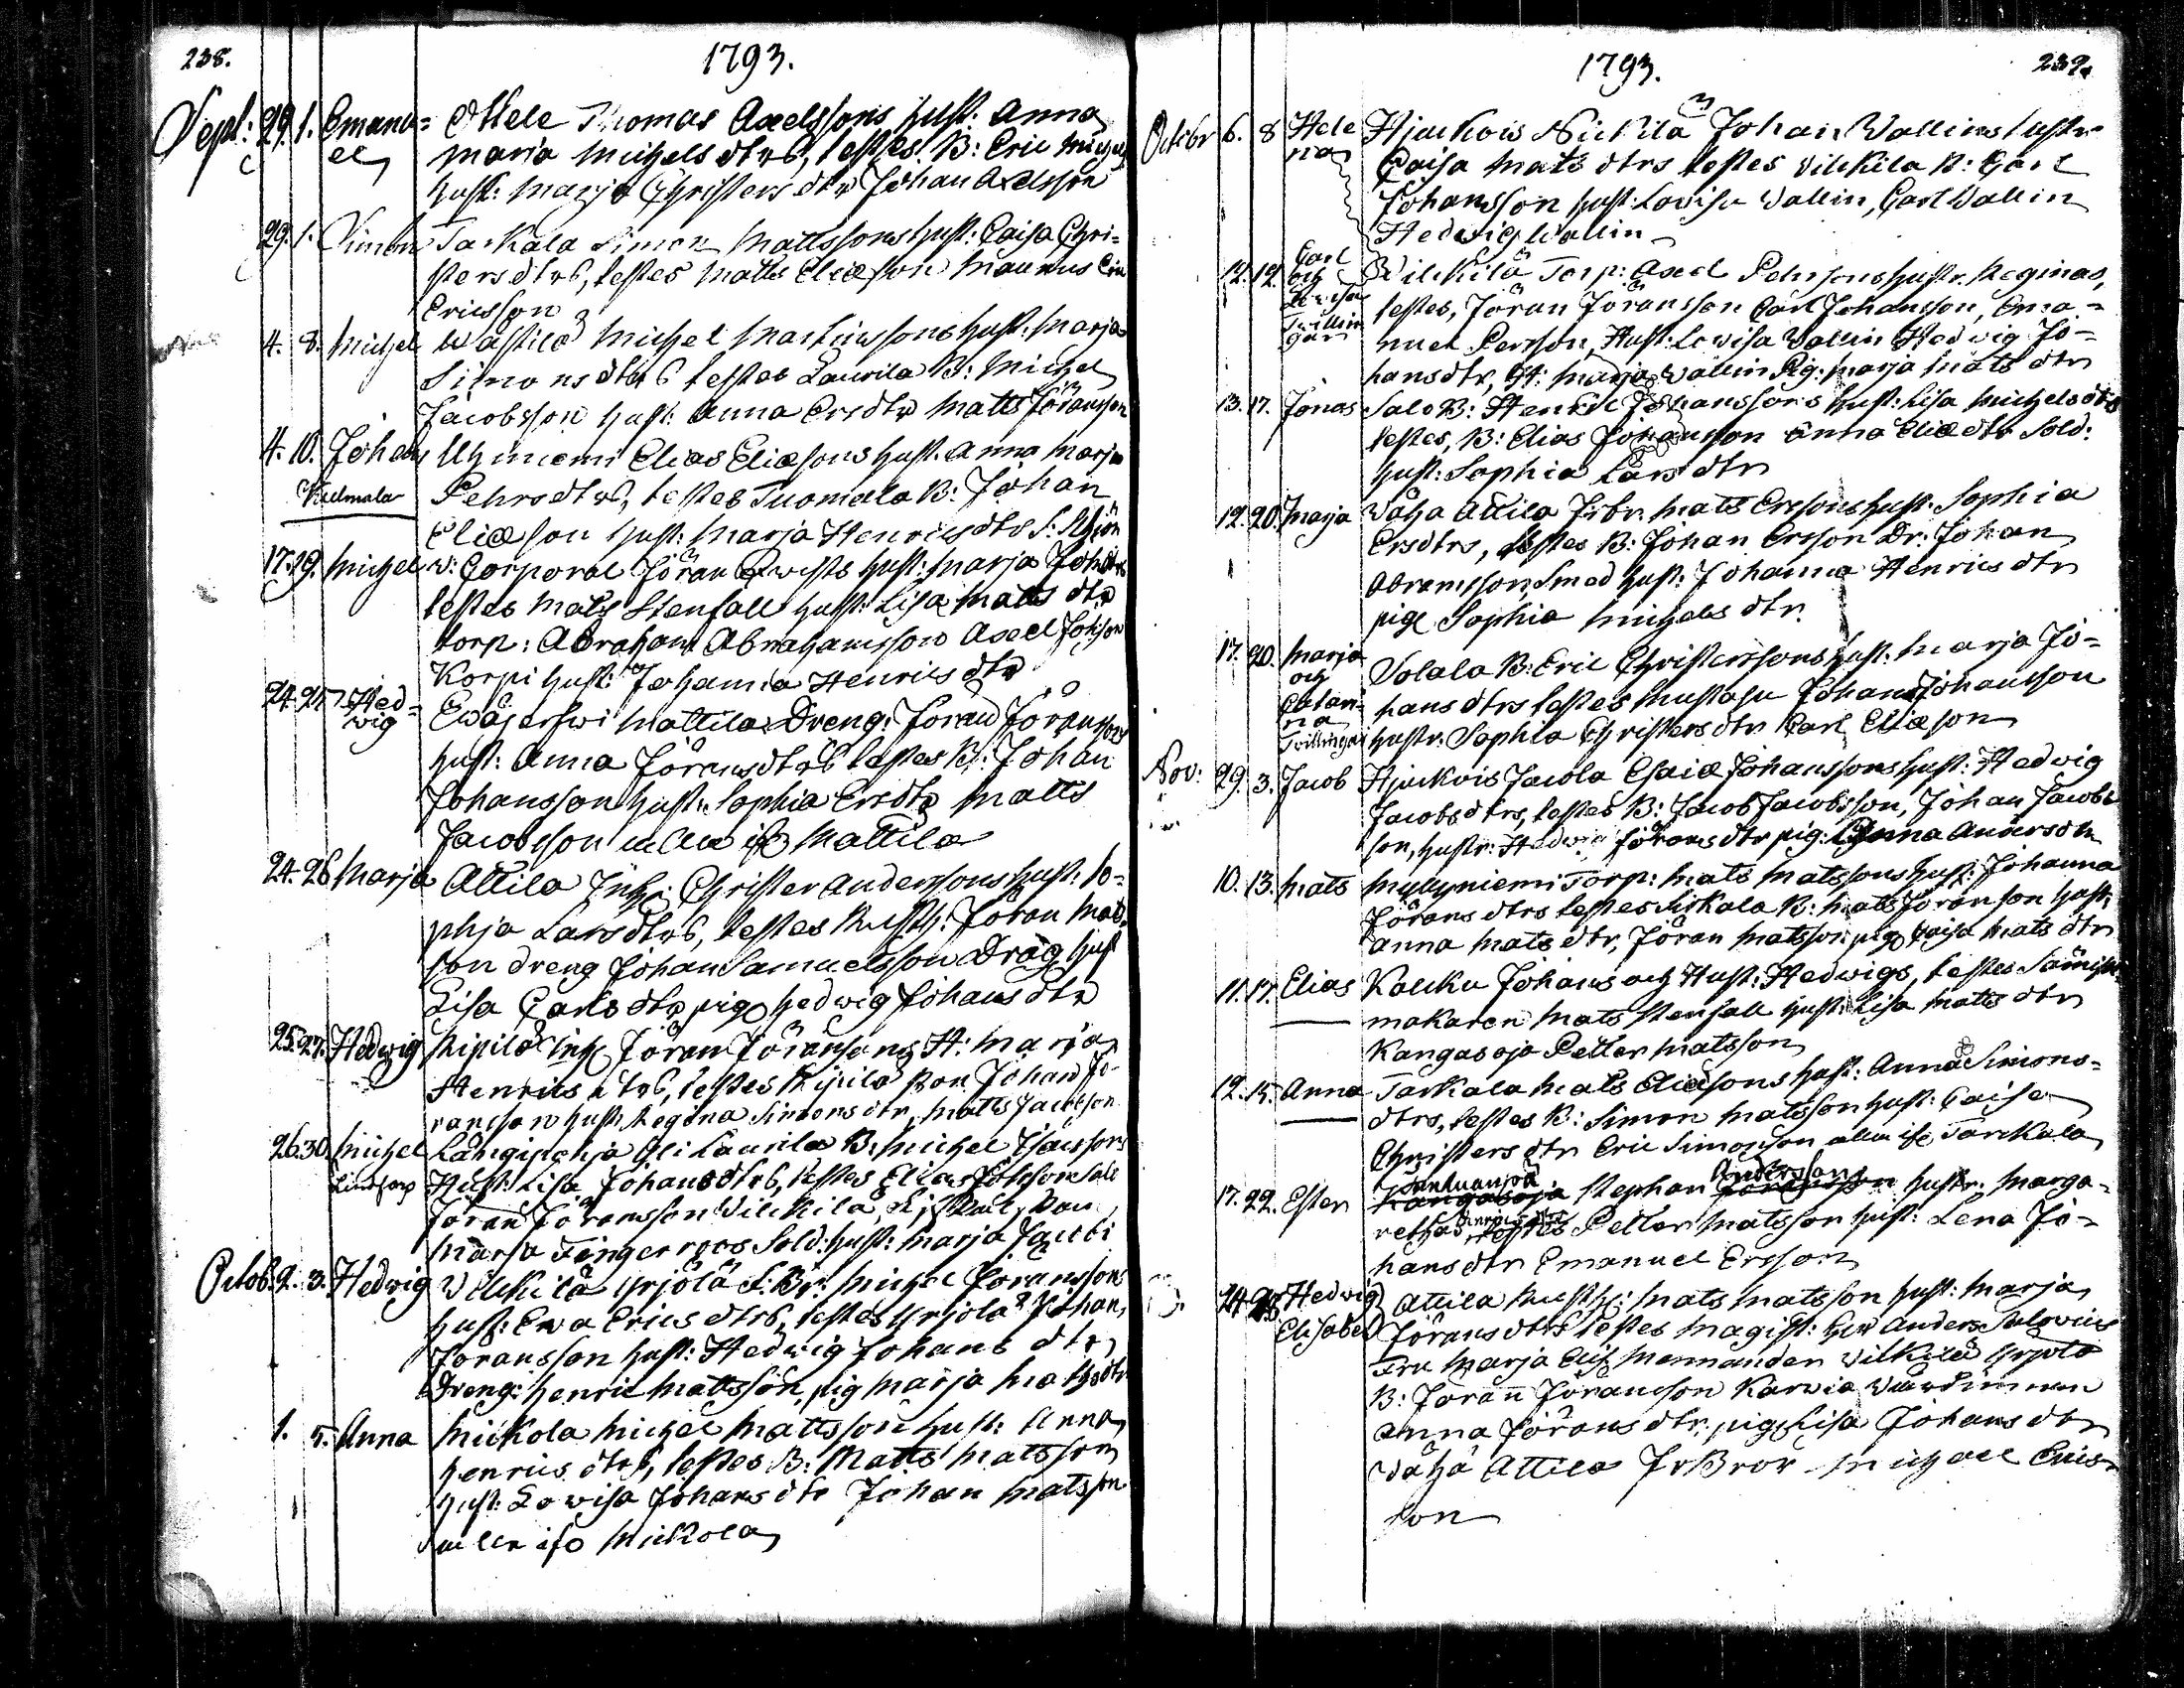 238.
1793.
Sept: 29. 1. Emanu= Thomas Axelssons hust: Anna
el Maria Michels dtrs, testes B: Eric Michels
hust: Marja Christers dtr Johan Axelsson
29. 1. Simon Tarkala Simon Mattssons hust: Caisa Chri=
sters dtrs, testes Matts Eliæson Maunus
Ericsson
4. 8. Michel Wastila Michel Martinssons hust: Marja
Simons dtrs testes Laurila B: Michel
Jacobsson hust: Anna Ersdtr Matts Jöransson
4. 10. Johan Elias Eliæsons hust: Anna Marja
Kulmala Pehrs dtrs, testes Tuomola B: Johan
Eliæson hust: Marja Henrics dtr
17. 19. Michel v: Corporal Jöran Qwists hust: Marja Joh dtrs
testes Mats Stenfall hust: Lisa Matts dtr
torp: Abraham Abrahamsson Axel Johsson
Korpi hust: Johanna Henrics dtr
24. 25 Hed= Mattila Dreng: Jöran Jöranssons
wig hust: Anna Jörans dtrs testes B: Johan
Johansson hust: Sophia Ersdtr Matts
Jacobsson Mattila
24. 26 Marja Attila Inh: Christer Anderssons hust: So=
phja Lars dtrs, testes Rusth: Jöran Mats=
son dreng Johan Samuelsson Dräg hust
Lisa Carls dtr pig Hedwig Johans dtr
25. 27. Hedwig Ripilä Inh Jöran Jöransons H: Maria
Henrics dtrs, testes Ripilä Bon Johan Jö=
ransson hust Regina Simons dtr, Matts Jacobson
26. 30. Michel Långipohja Yli Laurila B: Michel Isacssons
Lindfors Hust: Lisa Johans dtrs, testes Elias Johsson Salo
Jöran Jöransson Wilckilä,
Maria Fingerroos Sold: hust: Marja Jacobi
Octob. 2. 3. Hedwig Wilckilä Yrjölä S: Br: Michel Jöranssons
hust: Ewa Erics dtrs, testes Yrjölä Johan
Joransson hust: Hedwig Johans dtr
Dreng: Henric Mattsson, pig Marja Math: dtr
1. 5. Anna Mickola Michel Mattsson hust: Anna
Henrics dtrs, testes B: Matts Matsson
hust: Lowisa Johans dtr Johan Matsson
alla ifr Mickola
1793.
239.
Octobr 6. 8 Hele Hjuckois Nickilä Johan Wallins hustr:
na Caisa Mats dtrs testes Wilckilä B: Carl
Johansson hust: Lovisa Wallin, Carl Wallin
Hedwig Wallin
12. 12. Carl Wilckilä Torp: Axel Pehrssons hustr: Reginas,
och Lovisa testes, Jöran Jöransson Carl Johansson, Ema=
Twillin nuel Persson, Hust: Lowisa Wallin Hedwig Jo=
gar hansdtr, H: Marja Wallin Pig: Marja Mats dtr
13. 17. Jonas Salo B: Henric Johanssons hust: Lisa Michels dtrs
testes, B: Elias Johansson Anna Eliæ dtr Sold:
hust: Sophia Lars dtr
12. 20. Marja Wäha Attila Jrbr: Matts Erssons hust: Sophia
Ersdtrs, testes B: Johan Ersson Dr: Johan
Abramsson, Smed hust: Johanna Henrics dtr
pige Sophia Michels dtr.
17. 20. Marja Solala B: Eric Christerssons hust: Marja Jo=
och Catari= hans dtrs testes Mustasu Johan Johansson
na Twillingar hustr: Sophia Christers dtr Carl Eliæson
Nov: 29. 3. Jacob Hjuckois Jacola Esaiæ Johanssons hust: Hedwig
Jacobs dtrs, testes B: Jacob Jacobsson, Johan Jacobs
son, hustr: Hedwig Jörans dtr pig: Anna Anders dtr
10. 13. Mats Myllyniemi Torp: Mats Matssons hust: Johanna
Jörans dtrs testes Sirkala B: Mats Jöransson hust:
Anna Mats dtr, Jöran Matsson pig Caisa Mats dtr
11. 17. Elias Koucku Johans och Hust: Hedwigs, testes Sämisk=
makaren Mats Stenfall hust: Lisa Matts dtr
Kangasoja Petter Matsson
12. 15. Anna Tarkala Mats Eliæsons hust: Anna Simons=
dtrs, testes B: Simon Matsson hust: Caisa
Christers dtr Eric Simonson alla ifr Tarckala
17. 22. Ester Kangasoja Stephan Anderssons hustr: Marga=
rethas testes Petter Matsson hust: Lena Jo=
hans dtr Emanuel Ersson
24. Hedwig Attila Rusth: Mats Matsson hust: Marja
Elisabet Jörans dtrs testes Magist: Herr Anders Salovius
Fru Marja Elis: Mennander Wilkilä Yrjölä
B: Jöran Jöransson Karvia
Anna Jörans dtr, pig: Lisa Johans dtr
Wähä Attila JrBror Michael Erics=
son